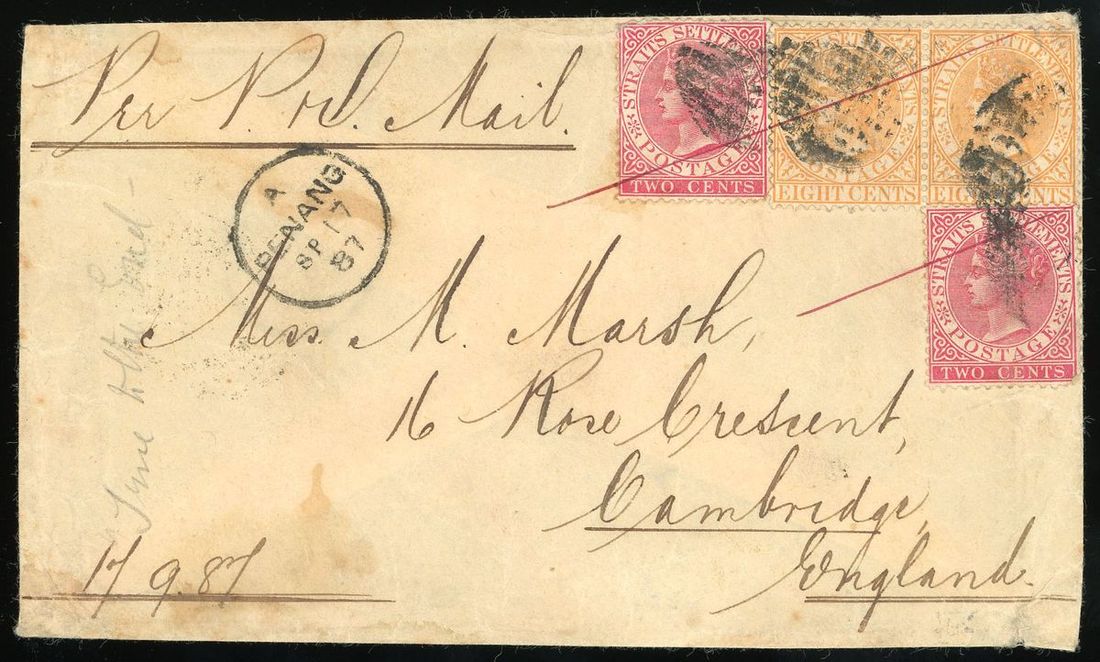 Per P. & O. Mail.
STRAITS SETTLEMENTS
POSTAGE
TWO CENTS
STRAITS SETTLEMENTS
POSTAGE
EIGHT CENTS
STRAITS SETTLEMENTS
POSTAGE
EIGHT CENTS
STRAITS SETTLEMENTS
POSTAGE
TWO CENTS
A
PENANG
SP 17
87
Miss. M. Marsh,
16 Rose Crescent,
Cambridge,
England.
17 9.87